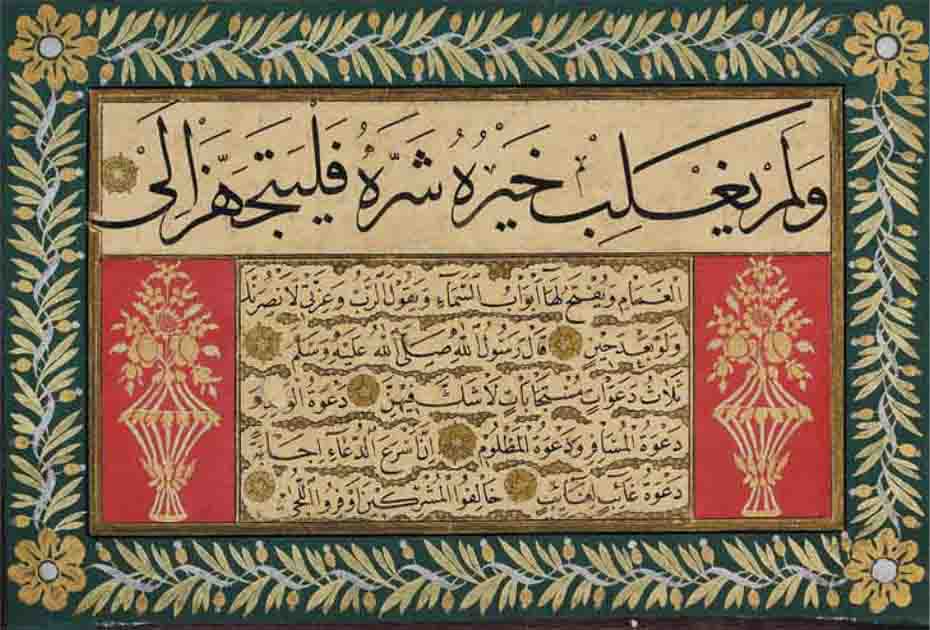 وَلَمْ يَغْلِبْ خَيْرُهُ شَرَّهُ فَلْيَتَجَهَّزْ اِلَى
الغَمَامِ وَيُفْتَحُ لَهَا اَبْوَابُ السَّمَاءِ وَيَقُولُ الرَّبُّ وَعِزَّتِي لَانْصُرَنَّكَ
وَلَوْ بَعْدَ حِينٍ قَالَ رَسُولُ اللهِ صَلَّى اللهُ عَلَيْهِ وَسَلَّمَ
ثَلَاثُ دَعَوَاتٍ مُسْتَجَابَاتٍ لَا شَكَّ فِيهِنَّ دَعْوَةُ الْوَالِدِ وَ
دَعْوَةُ الْمُسَافِرِ وَدَعْوَةُ الْمَظْلُومِ اِنَّ اَسْرَعَ الدُّعَاءِ اِجَابَةً
دَعْوَةُ غَائِبٍ لِغَائِبٍ خَالِفُوا الْمُشْرِكِينَ اَوْفِرُوا اللُّحَى